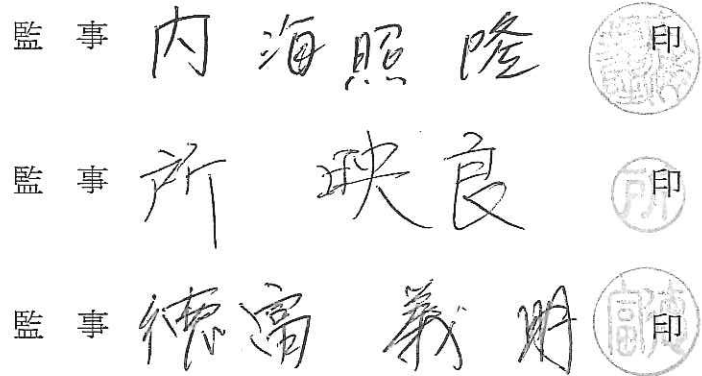 監事 内海照隆 印
監事 所映良 印
監事 徳富義明 印